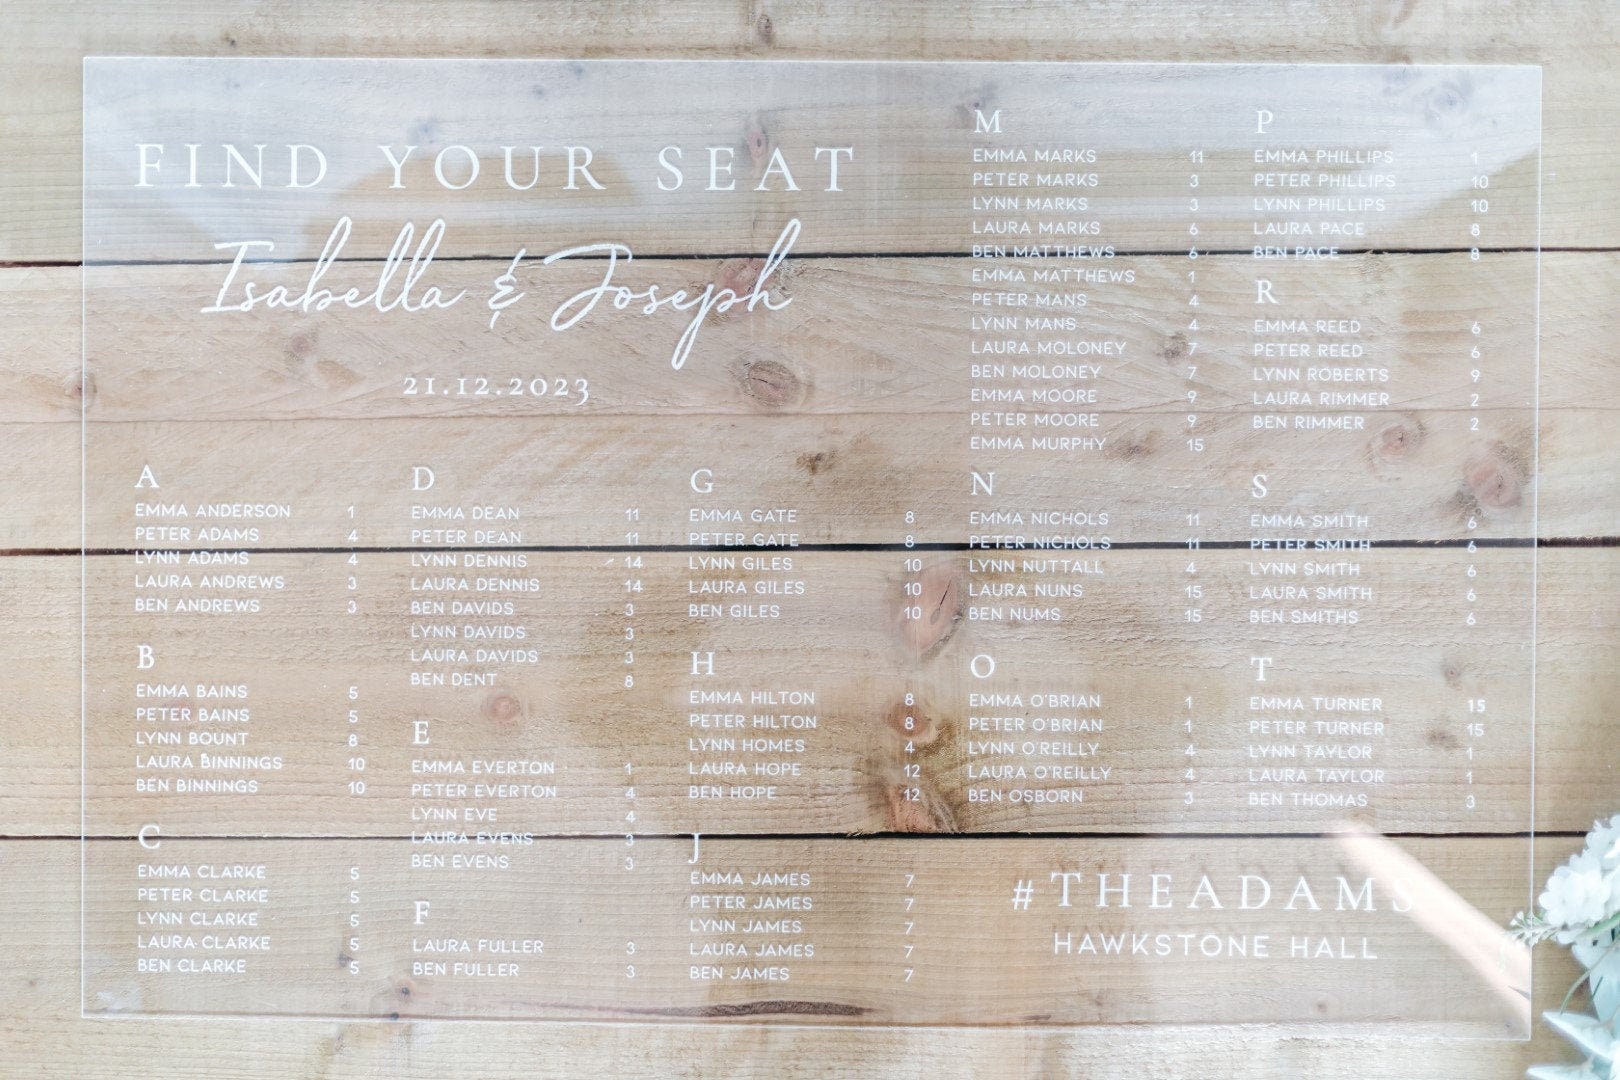 FIND YOUR SEAT
Isabella & Joseph
21.12.2023
A
EMMA ANDERSON 1
PETER ADAMS 4
LYNN ADAMS 4
LAURA ANDREWS 3
BEN ANDREWS 3
B
EMMA BAINS 5
PETER BAINS 5
LYNN BOUNT 8
LAURA BINNINGS 10
BEN BINNINGS 10
C
EMMA CLARKE 5
PETER CLARKE 5
LYNN CLARKE 5
LAURA CLARKE 5
BEN CLARKE 5
D
EMMA DEAN 11
PETER DEAN 11
LYNN DENNIS 14
LAURA DENNIS 14
BEN DAVIDS 3
LYNN DAVIDS 3
LAURA DAVIDS 3
BEN DENT 8
E
EMMA EVERTON 1
PETER EVERTON 4
LYNN EVE 4
LAURA EVENS 3
BEN EVENS 3
F
LAURA FULLER 3
BEN FULLER 3
G
EMMA GATE 8
PETER GATE 8
LYNN GILES 10
LAURA GILES 10
BEN GILES 10
H
EMMA HILTON 8
PETER HILTON 8
LYNN HOMES 4
LAURA HOPE 12
BEN HOPE 12
J
EMMA JAMES 7
PETER JAMES 7
LYNN JAMES 7
LAURA JAMES 7
BEN JAMES 7
M
EMMA MARKS 11
PETER MARKS 3
LYNN MARKS 3
LAURA MARKS 6
BEN MATTHEWS 6
EMMA MATTHEWS 1
PETER MANS 4
LYNN MANS 4
LAURA MOLONEY 7
BEN MOLONEY 7
EMMA MOORE 9
PETER MOORE 9
EMMA MURPHY 15
N
EMMA NICHOLS 11
PETER NICHOLS 11
LYNN NUTTALL 4
LAURA NUNS 15
BEN NUMS 15
O
EMMA O'BRIAN 1
PETER O'BRIAN 1
LYNN O'REILLY 4
LAURA O'REILLY 4
BEN OSBORN 3
P
EMMA PHILLIPS 1
PETER PHILLIPS 10
LYNN PHILLIPS 10
LAURA PACE 8
BEN PACE 8
R
EMMA REED 6
PETER REED 6
LYNN ROBERTS 9
LAURA RIMMER 2
BEN RIMMER 2
S
EMMA SMITH 6
PETER SMITH 6
LYNN SMITH 6
LAURA SMITH 6
BEN SMITHS 6
T
EMMA TURNER 15
PETER TURNER 15
LYNN TAYLOR 1
LAURA TAYLOR 1
BEN THOMAS 3
#THEADAMS
HAWKSTONE HALL